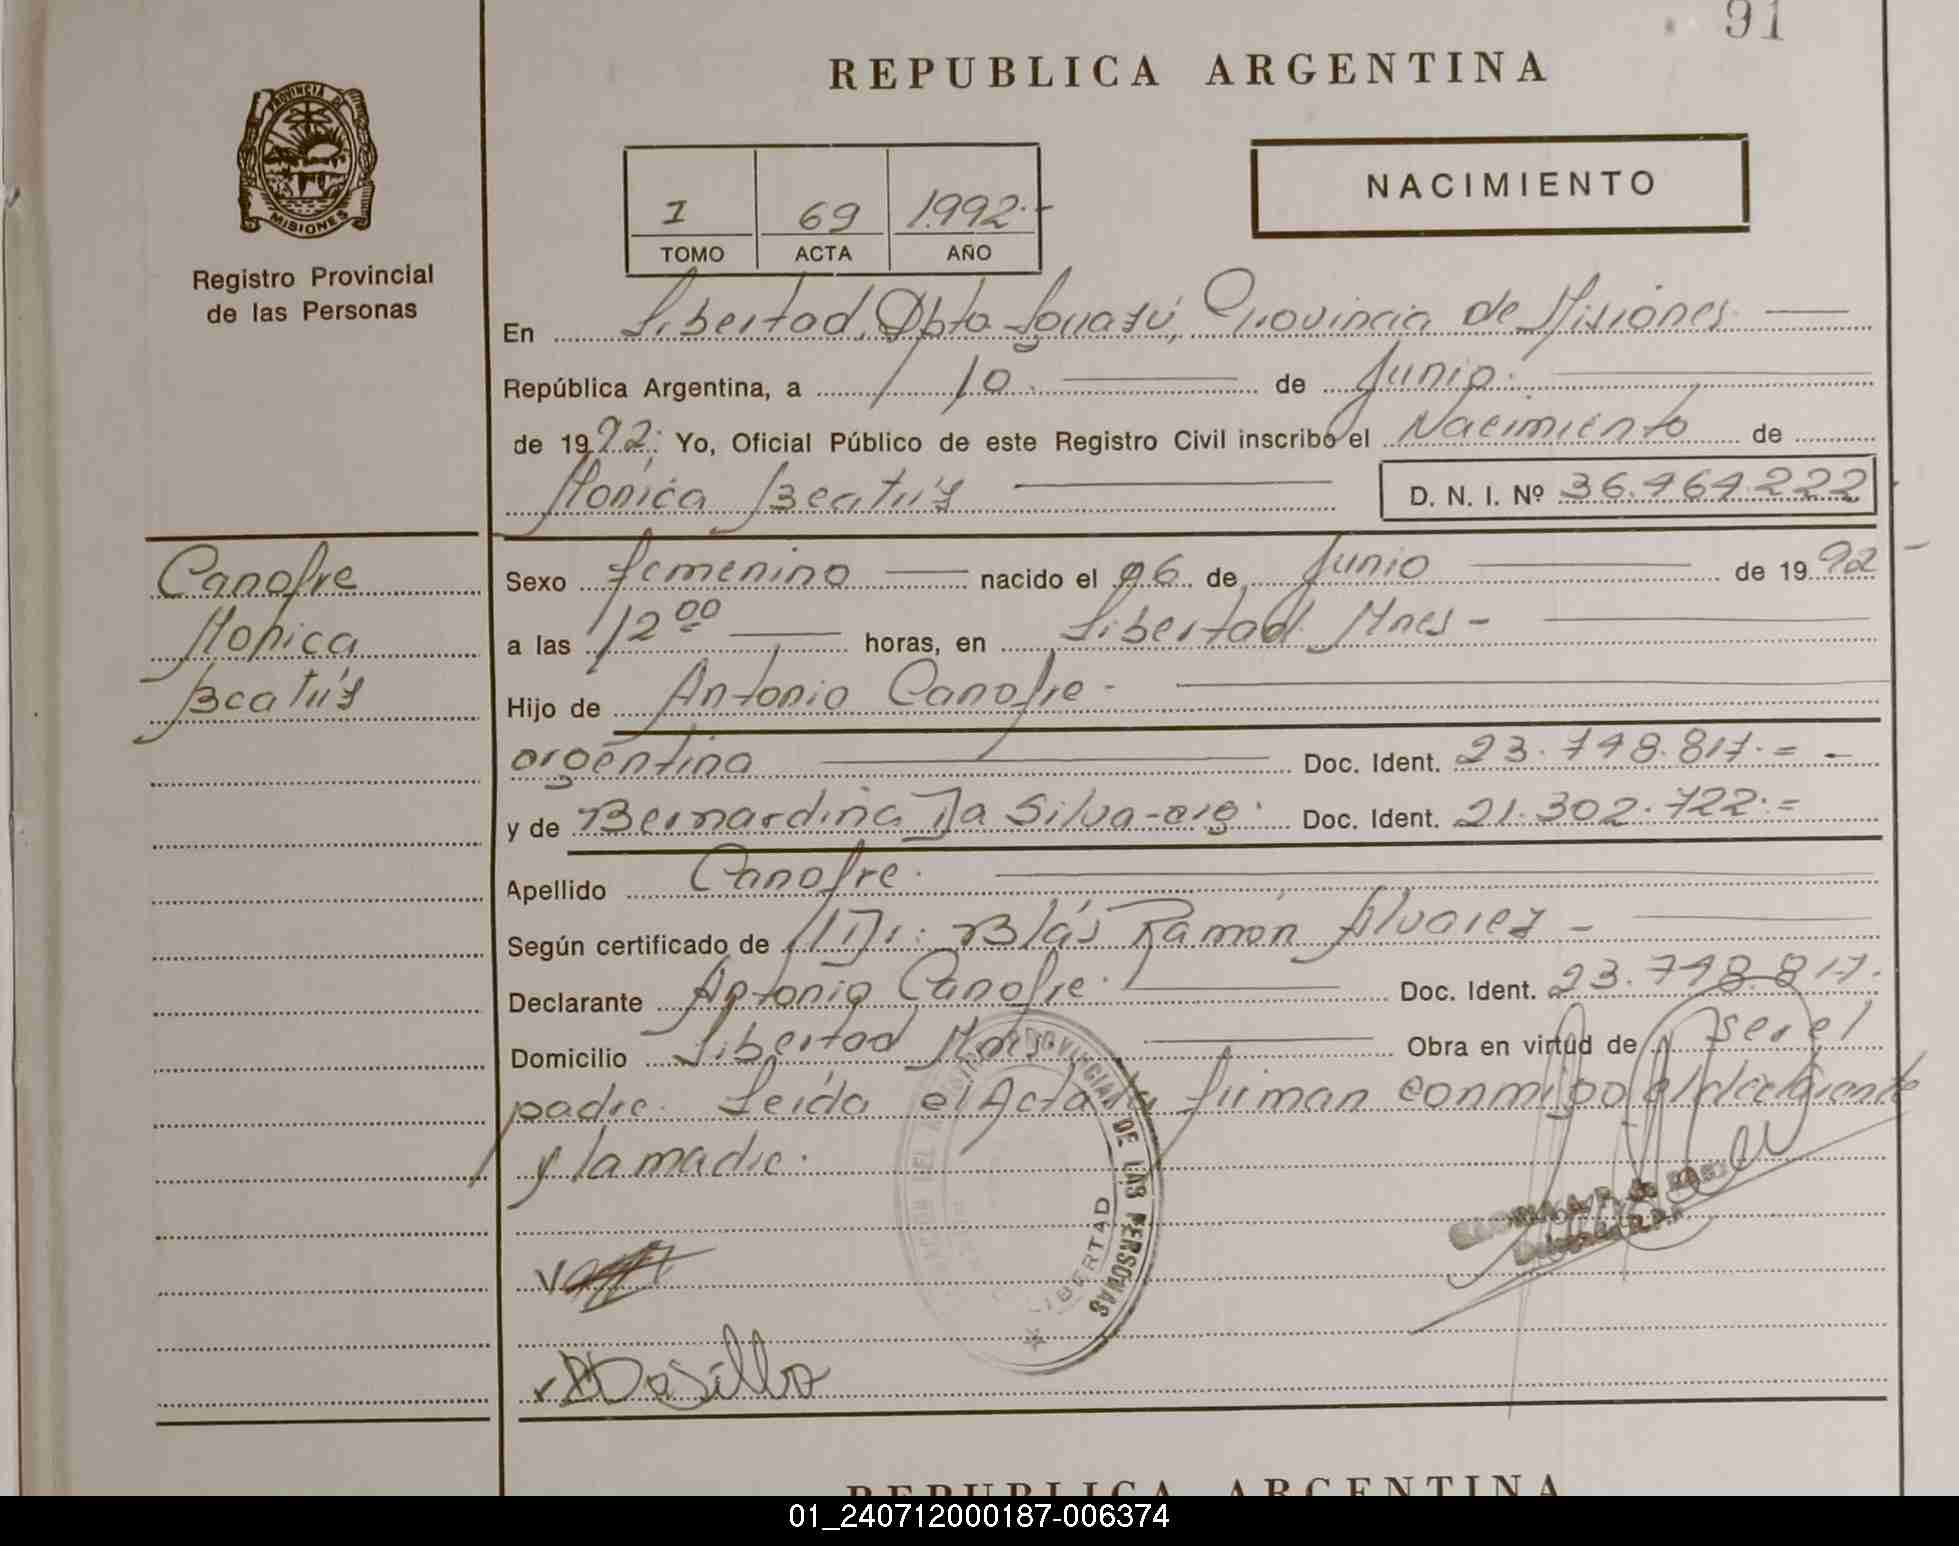 91
REPUBLICA ARGENTINA
PROVINCIA DE
MISIONES
Registro Provincial
de las Personas
I 69 1.992.-
TOMO ACTA AÑO
NACIMIENTO
En Libertad, Dpto Iguazú, Provincia de Misiones
República Argentina, a 10. de Junio.
de 1992. Yo, Oficial Público de este Registro Civil inscribo el Nacimiento de
Monica Beatriz D. N. I. Nº 36.464.222
Canofre
Monica
Beatriz
Sexo femenino nacido el 06 de Junio de 1992 -
a las 12 00 horas, en Libertad Mnes -
Hijo de Antonio Canofre -
argentina Doc. Ident. 23.748.817.= -
y de Bernardina Da Silva-arg. Doc. Ident. 21.302.722.=
Apellido Canofre.
Según certificado de Dr. Blás Ramón Alvarez -
Declarante Antonio Canofre. Doc. Ident. 23.748.817.
Domicilio Libertad Mnes. Obra en virtud de ser el
padre. Leída el Acta la firman conmigo el declarante
y la madre.
PROVINCIAL DE LAS PERSONAS
LIBERTAD
DaSilva
REPUBLICA ARGENTINA
01_240712000187-006374